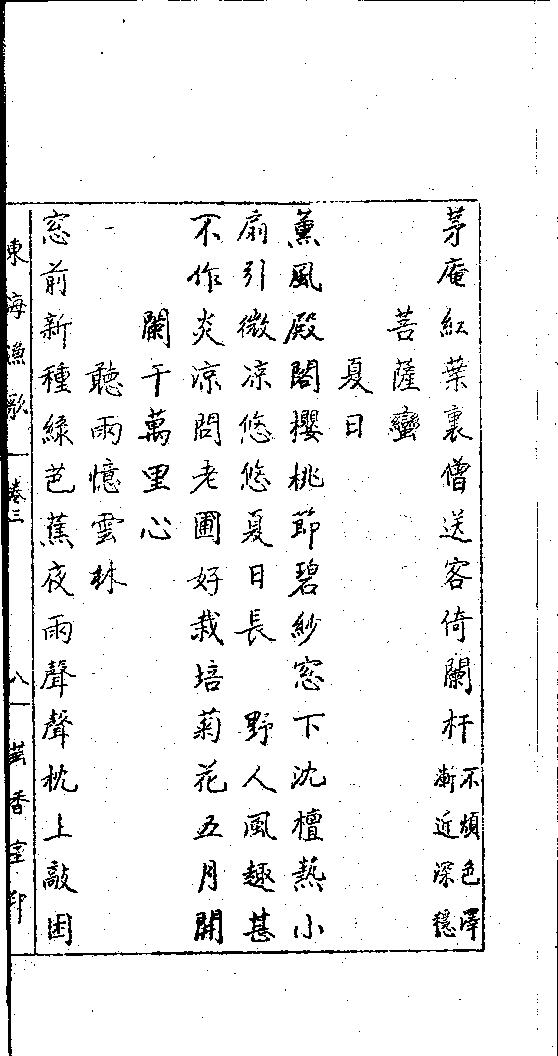 茅庵紅葉裏僧送客倚闌杆
不煩色澤
漸近深穩
菩薩蠻
夏日
薰風殿閣櫻桃節碧紗窓下沈檀熱小
扇引微凉悠悠夏日長　野人風趣甚
不作炎凉問老圃好栽培菊花五月開
闌干萬里心
聽雨憶雲林
窓前新種綠芭蕉夜雨聲聲枕上敲困
東海漁歌　卷三　八　香室